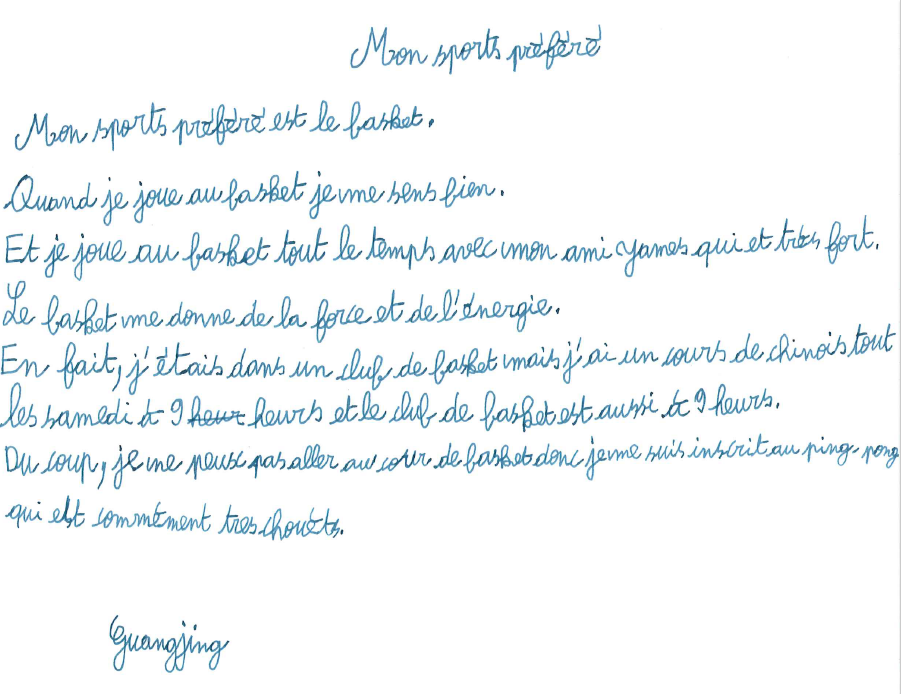 Mon sports préféré
Mon sports préféré est le basket.
Quand je joue au basket je me sens bien.
Et je joue au basket tout le temps avec mon ami yames qui et très fort.
Le basket me donne de la force et de l'énergie.
En fait, j'étais dans un club de basket mais j'ai un cours de chinois tout
les samedi à 9 heur heurs et le club de basket est aussi à 9 heurs.
Du coup, je ne peux pas aller au cour de basket donc je me suis inscrit au ping-pong
qui est commèment tres chouèts.
Guangjing